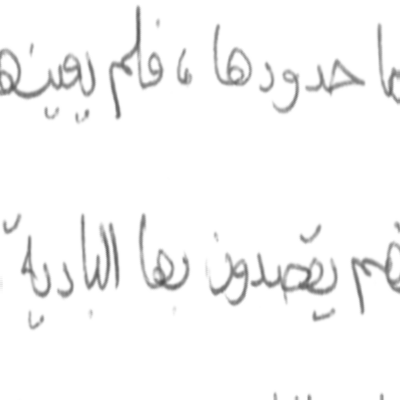 ما حدودها ، فلم يعينها
هم يقصدون بها البادية